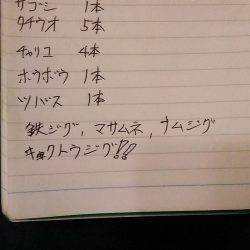 サゴシ 1本
タチウオ 5本
チャリコ 4本
ホウボウ 1本
ツバス 1本
鉄ジグ, マサムネ, ナムジング
キョクトウジグ!!